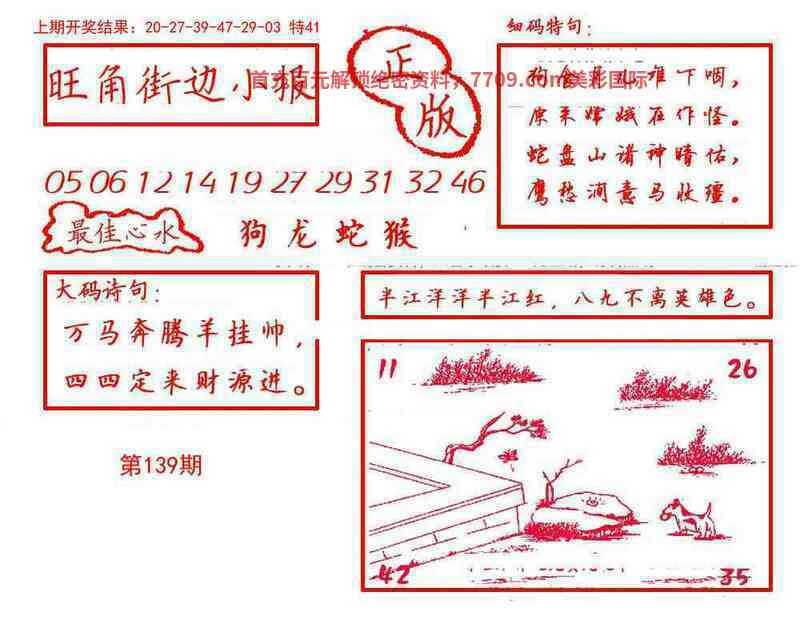 上期开奖结果：20-27-39-47-29-03 特41
旺角街边小报
正版
首充百元解锁绝密资料，7709.com美彩国际
细码特句：
狗食 下咽，
原来嫦娥在作怪。
蛇盘山诸神暗佑，
鹰愁涧意马收疆。
05 06 12 14 19 27 29 31 32 46
最佳心水
狗龙蛇猴
大码诗句：
万马奔腾羊挂帅，
四四定来财源进。
半江洋洋半江红，八九不离英雄色。
第139期
11
26
42
35